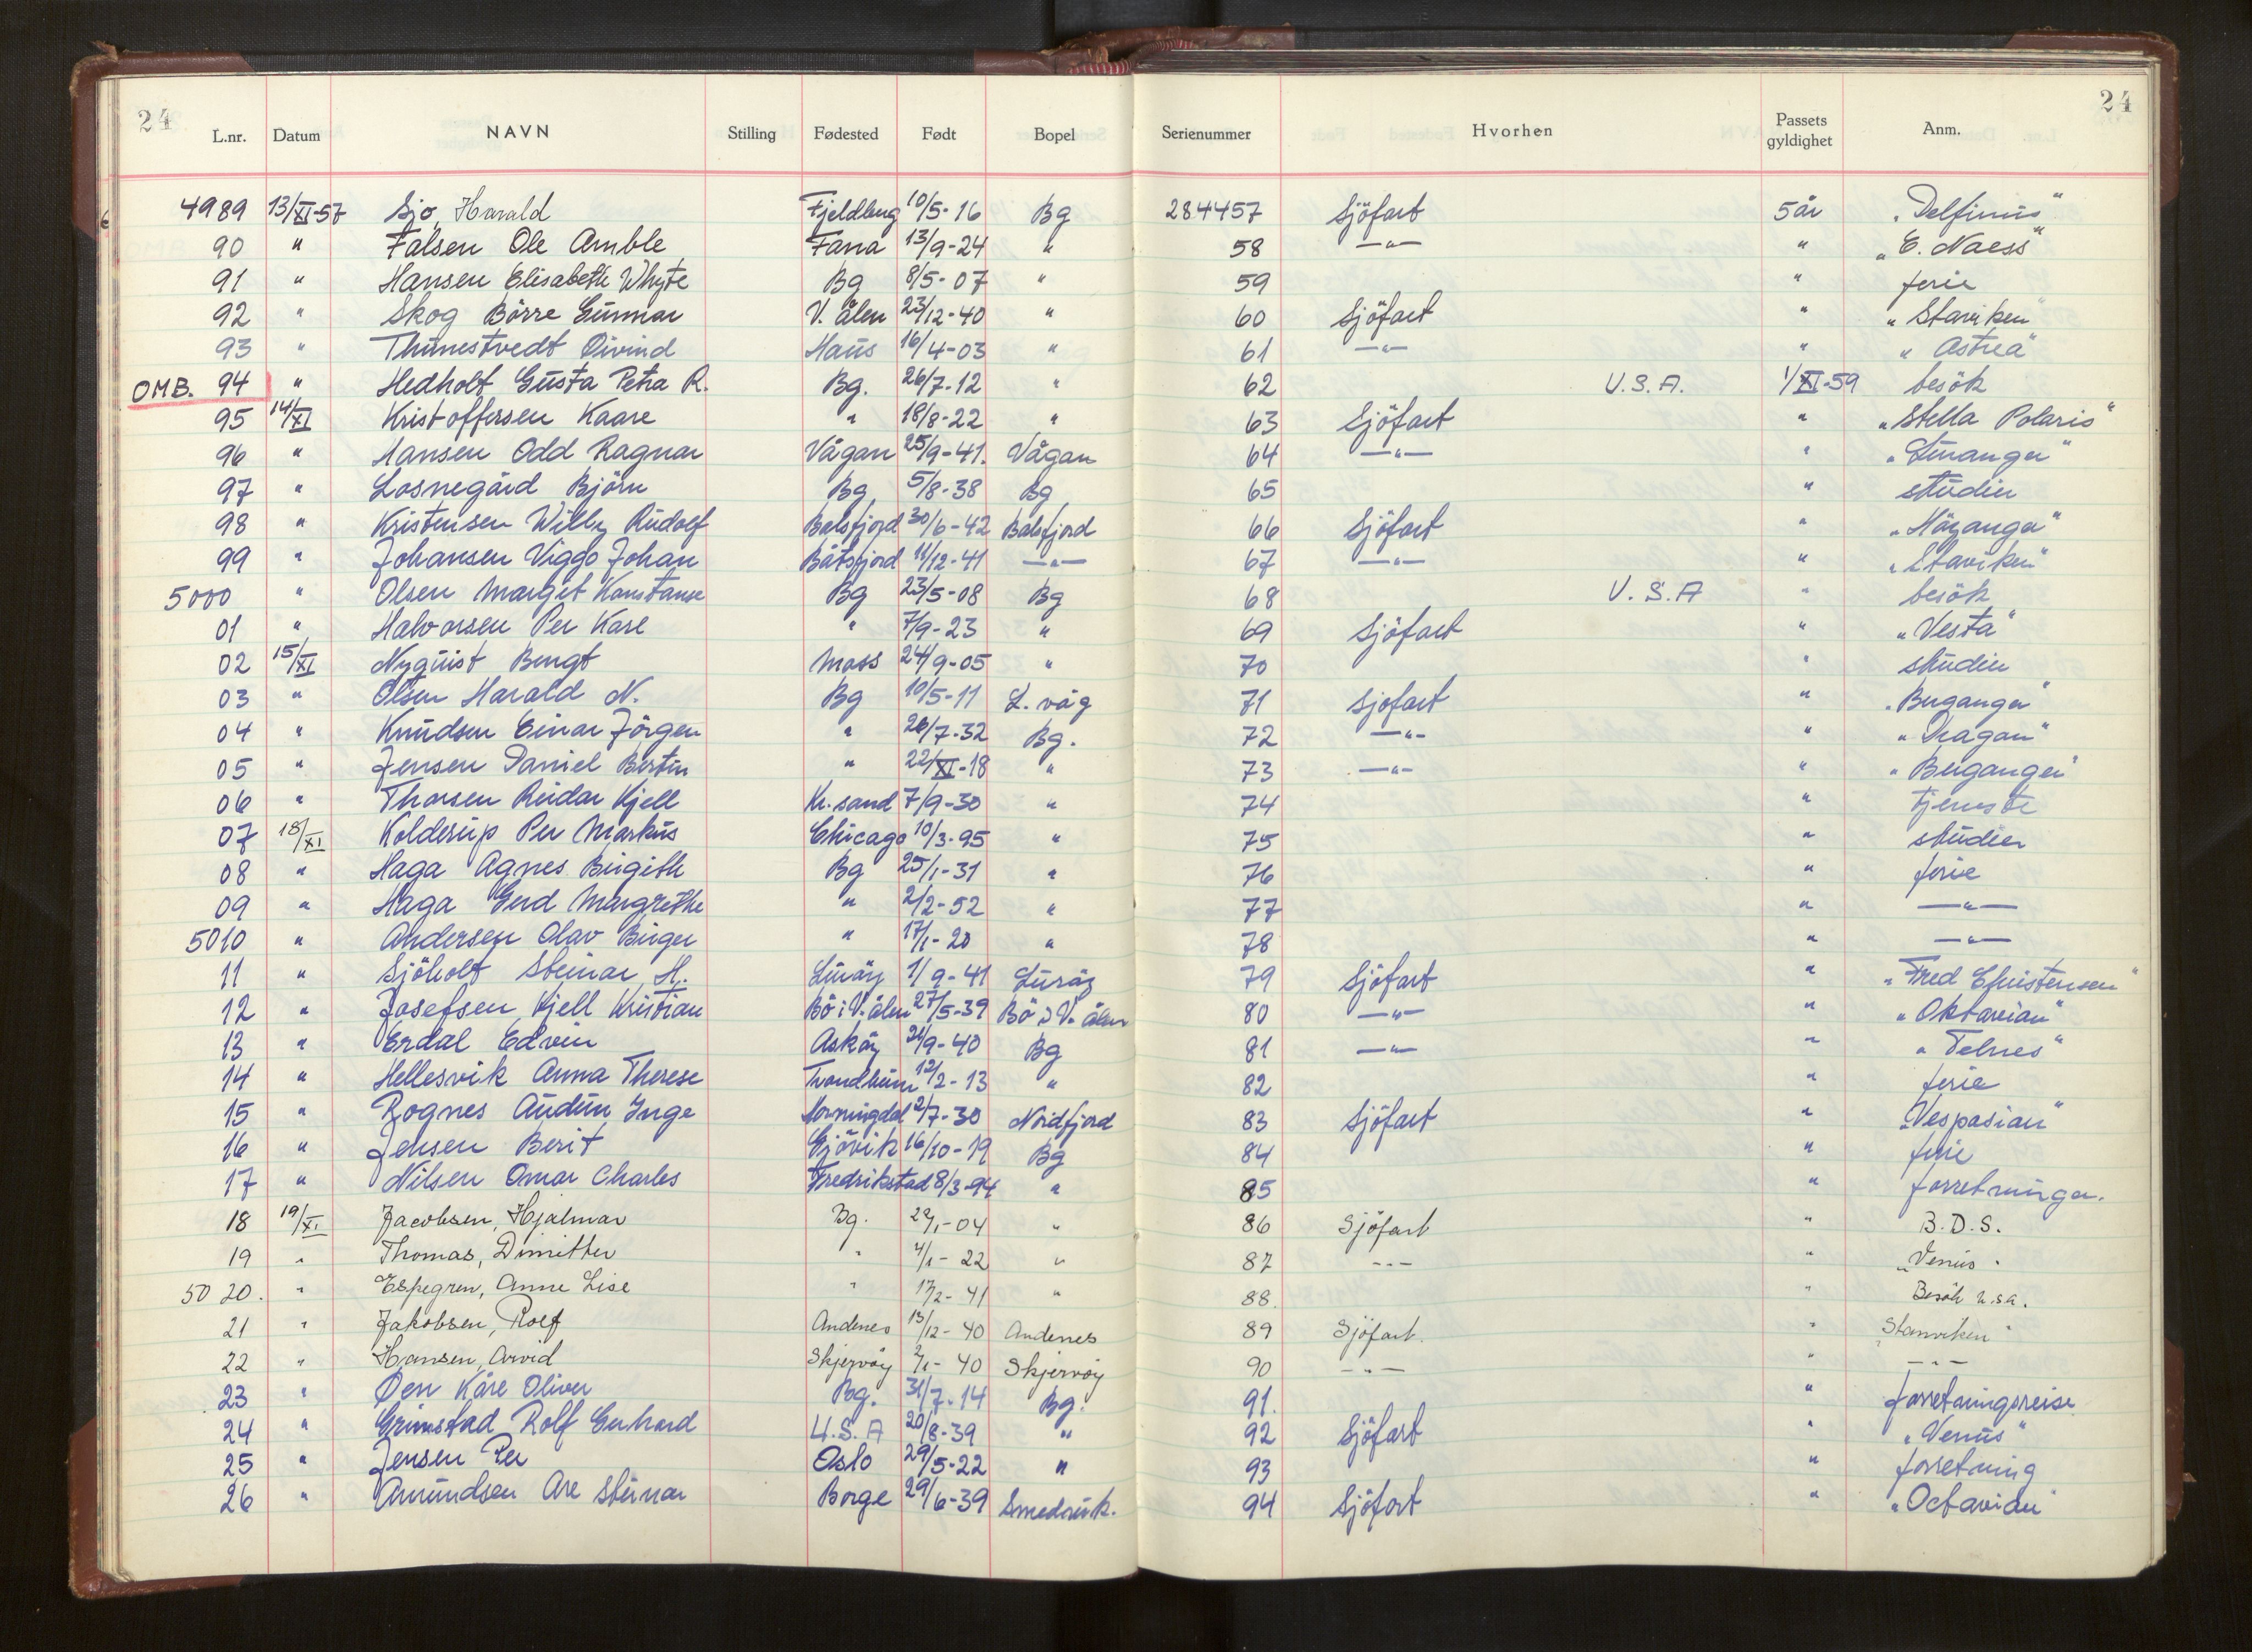 24 24
L.nr. Datum NAVN Stilling Fødested Født Bopel Serienummer Hvorhen Passets gyldighet Anm.
4989 13/XI-57 Sjo, Harald Fjeldberg 10/5-16 Bg 284457 Sjöfart 5 år "Delfinus"
90 " Falsen Ole Amble Fana 13/9-24 " 58 —"— " "E. Naess"
91 " Hansen Elisabeth Whyte Bg 8/5-07 " 59 " ferie
92 " Skog Börre Gunnar V. Ålen 23/12-40 " 60 Sjöfart " "Staviken"
93 " Thunestvedt Öivind Haus 16/4-03 " 61 —"— " "Astrea"
OMB. 94 " Hedholt Gusta Petra R. Bg. 26/7-12 " 62 U.S.A. 1/XI-59 besök
95 14/XI Kristoffersen Kaare " 18/8-22 " 63 Sjöfart " "Stella Polaris"
96 " Hansen Odd Ragnar Vågan 25/9-41. Vågan 64 —"—  "
97 " Losnegård Björn Bg 5/8-38 Bg 65 " studier
98 " Kristensen Willy Rudolf Balsfjord 30/6-42 Balsfjord 66 Sjöfart " "Höyanger"
99 " Johansen Viggo Johan Båtsfjord 11/12-41 —"— 67 —"— " "Staviken"
5000 " Olsen Margit Konstanse Bg 23/5-08 Bg 68 U.S.A " besök
01 " Halvorsen Per Kare " 7/9-23 " 69 Sjöfart " "Vesta"
02 15/XI Nyquist Bengt Moss 24/9-05 " 70 " studier
03 " Olsen Harald N. Bg 10/5-11 L.våg 71 Sjöfart " "Berganger"
04 " Knudsen Einar Jörgen " 26/7-32 Bg. 72 —"— "
05 " Jensen Daniel Bertin " 22/XI-18 " 73 —"— " "Berganger"
06 " Thorsen Reidar Kjell Kr.sand 7/9-30 " 74 " tjeneste
07 18/XI Kolderup Per Markus Chicago 10/3-95 " 75 " studier
08 " Haga Agnes Birgith Bg 25/1-31 " 76 " ferie
09 " Haga Gerd Margrethe " 2/2-52 " 77 " —"—
5010 " Andersen Olav Birger " 17/1-20 " 78 " —"—
11 " Sjöholt Steinar H. Luröy 1/9-41 Luröy 79 Sjöfart " "Fred Christensen"
12 " Josefsen Kjell Kristian Bö i V.ålen 27/5-39 Bö i V. ålen 80 —"— " "Oktavian"
13 " Erdal Edvin Asköy 21/9-40 Bg 81 —"— " "Telnes"
14 " Hellesvik Anna Therese Trondheim 12/2-13 " 82 " ferie
15 " Rognes Audun Inge 2/7-30 Nordfjord 83 Sjöfart " "Vespasian"
16 " Jensen Berit Gjövik 16/10-19 Bg 84 " ferie
17 " Nilsen Omar Charles Fredrikstad 8/3-94 " 85 " forretninger.
18 19/XI Jacobsen, Hjalmar Bg. 22/1-04 " 86 Sjöfart " B.D.S.
19 " Thomas, Dimitter " 4/1-22 " 87 -"- " "Venus"
50 20. " Espegren, Anne Lise " 17/2-41 " 88. " Besök U.S.A.
21 " Jakobsen, Rolf Andenes 13/12-40 Andenes 89 Sjöfart. " "Stanviken"
22 " Hansen, Arvid Skjervöy 2/1-40 Skjervöy 90 -"- " -"-
23 " Øen Kåre Oliver Bg. 31/7-14 Bg. 91. " forretningsreise
24 " Grimstad Rolf Gerhard U.S.A 20/8-39 " 92 Sjöfart " "Venus"
25 " Jensen Per Oslo 29/5-22 " 93 " forretning
26 " Amundsen Are Steinar Borge 29/6-39 Smedsvik. 94 Sjöfart " "Octavian"